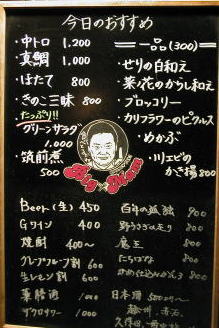 今日のおすすめ
・中トロ 1,200
・真鯛 1,000
・ほたて 800
・きのこ三昧 800
・たっぷり!!
グリーンサラダ
1,000
・筑前煮
500
一品(300)
・せりの白和え
・菜ノ花のからし和え
・ブロッコリー
・カリフラワーのピクルス
・めかぶ
・川エビの
かき揚 800
Beer(生) 450
Gワイン 400
焼酎 400〜
グレープフルーツ割 600
生レモン割 600
薬膳酒 1000
ザクロサワー
百年の孤独 900
野うさぎの走り 800
魔王 800
たちばな 800
日本酒 500円〜
越州
久保田